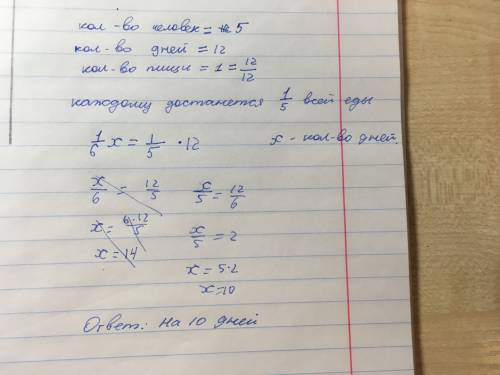 кол-во человек = 5
кол-во дней = 12
кол-во пищи = 1 = 12/12
каждому достанется 1/5 всей еды
1/6 x = 1/5 · 12 x - кол-во дней.
x/6 = 12/5 x/5 = 12/6
x = 6·12/5 x/5 = 2
x = 14 x = 5·2
x = 10
Ответ: на 10 дней